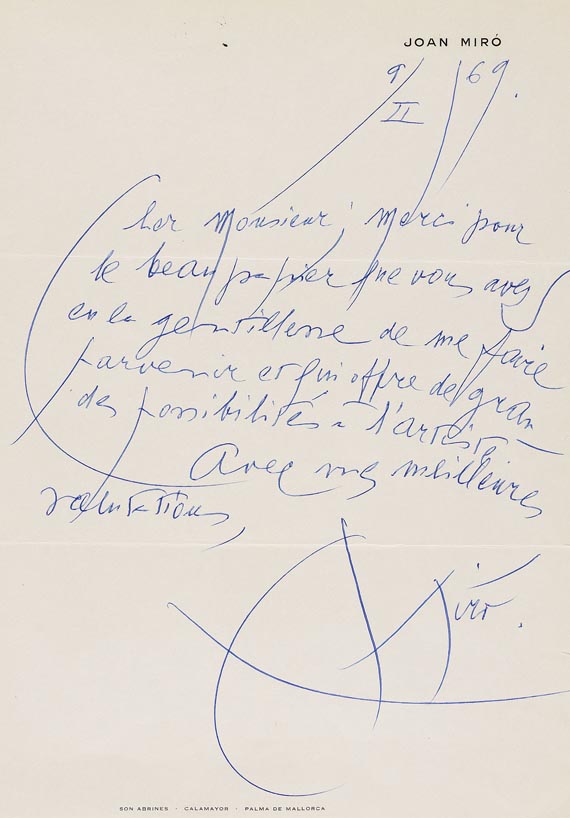 JOAN MIRÓ
9/II 69.
Cher Monsieur, merci pour
le beau papier que vous avez
eu la gentillesse de me faire
parvenir et qui offre de gran-
des possibilités a l'artiste.
Avec mes meilleures
salutations,
Miró.
SON ABRINES · CALAMAYOR · PALMA DE MALLORCA